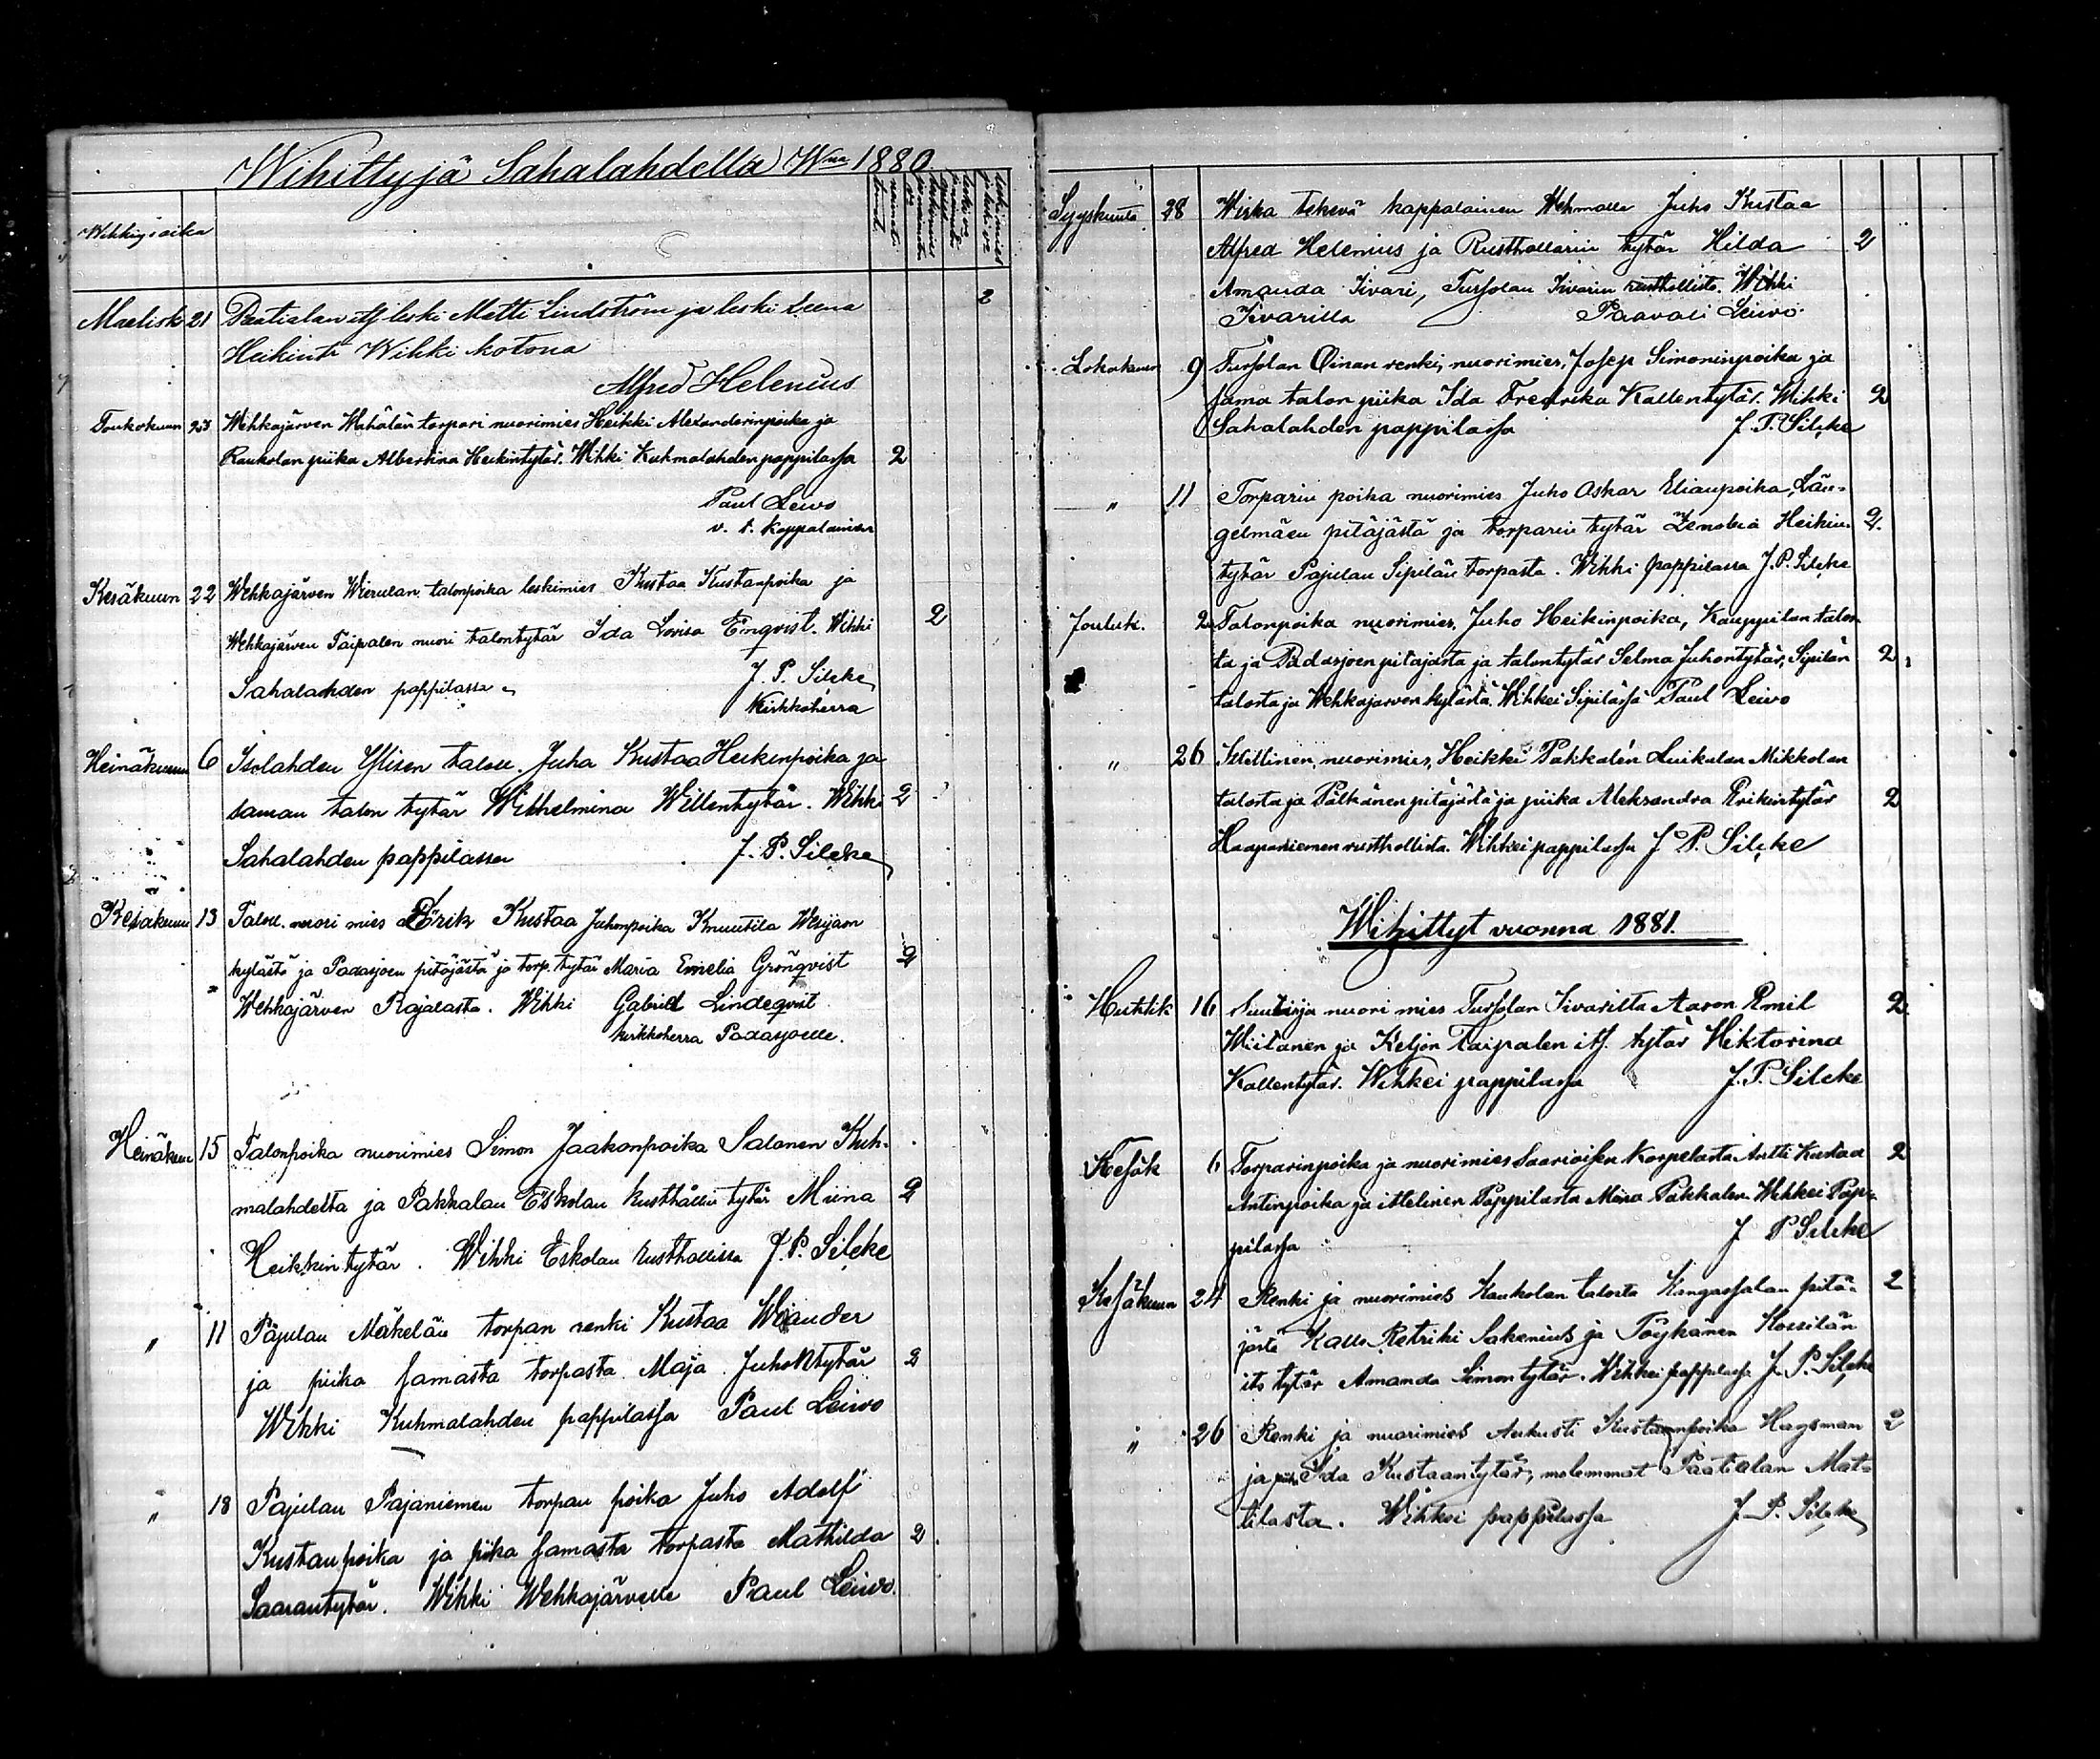 Wihittyjä Sahalahdella Wna 1880
Wihkiys aika
Maalisk 21 Paatialan itj leski Matti Lindström ja leski Leena 2
Heikint Wihki kotona
Alfred Helenius
Toukokuun 23 Wehkajärven torpari nuorimies Heikki Alexanderinpoika ja
Raukolan piika Albertina Heikintytär. Wihki Kuhmalahden pappilassa 2
Paul Leivo
v. t. kappalainen
Kesäkuun 22 Wehkajärven Wierulan talonpoika leskimies Kustaa Kustaanpoika ja
Wehkajärven Taipalen nuori talontytär Ida Lovisa Enqvist. Wihki 2
Sahalahden pappilassa J. P. Silcke
Kirkkoherra
Heinäkuun 6 Isolahden Ylisen talou. Juha Kustaa Heikinpoika ja
saman talon tytär Wilhelmina Willentytär. Wihki 2
Sahalahden pappilassa J. P. Silcke
Kesäkuun 13 Talou. nuori mies Erik Kustaa Juhonpoika Knuutila
kylästä ja Padasjoen pitäjästä ja torp. tytär Maria Emelia Grönqvist 2
Wehkajärven Rajalasta. Wihki Gabriel Lindeqvist
kirkkoherra Padasjoelle.
Heinäkuu 15 Talonpoika nuorimies Simon Jaakonpoika Salonen Kuh-
malahdelta ja Pakkalan Eskolan rusthollin tytär Miina 2
Heikkintytär. Wihki Eskolan rusthollissa J. P. Silcke
" 11 Pajulan Mäkelän torpan renki Kustaa Wander
ja piika samasta torpasta Maja Juhontytär 2
Wihki Kuhmalahden pappilassa Paul Leivo
" 18 Pajulan Pajaniemen torpan poika Juho Adolf
Kustanpoika ja piika samasta torpasta Mathilda 2.
Saarantytär. Wihki Wehkajärvelle Paul Leivo.
Syyskuuta 28 Wirka tekevä kappalainen Wehmalle Juho Kustaa
Alfred Helenius ja Rusthollarin tytär Hilda 2
Amanda Iivari, Tursolan Iivarin rusthollista. Wihki
Iivarilla Paavali Leivo.
Lokakuun 9 Tursolan Oinan renki, nuorimies, Josep Simoninpoika ja
sama talon piika Ida Fredrika Kallentytär. Wihki 2
Sahalahden pappilassa J. P. Silcke
" 11 Torparin poika nuorimies Juho Oskar Elianpoika, Län-
gelmäen pitäjästä ja torparin tytär Zenobia Heikin- 2.
tytär Pajulan Sipilän torpasta. Wihki pappilassa J. P. Silcke
Jouluk. 2 Talonpoika nuorimies, Juho Heikinpoika, Kauppilan talos-
ta ja Padasjoen pitäjästä ja talontytär Selma Juhontytär, Sipilän 2,
talosta ja Wehkajärven kylästä. Wihkei Sipilässä Paul Leivo
" 26 Itsellinen, nuorimies, Heikki Pakkalén Luikalan Mikkolan
talosta ja Pälkänen pitäjästä ja piika Aleksandra Erikintytär 2
Haapaniemen rusthollista. Wihkei pappilassa J. P. Silcke
Wihittyt vuonna 1881.
Huhtik 16 Suutarja nuori mies Tursolan Iivarilta Aaron Emil 2.
Wiitanen ja Keljon Taipalen itj. tytär Wiktorina
Kallentytär. Wihkei pappilassa J. P. Silcke
Kesäk 6 Torparinpoika ja nuorimies Saarioisen Korpelasta Antti Kustaa 2
Antinpoika ja ittelinen Pappilasta Mina Pakkalen. Wihkei Pap-
pilassa J P Silcke
Kesäkuun 24 Renki ja nuorimies Kaukolan talosta Kangassalan pitä- 2
jästä Kalle Retriki Sakenius ja Töykänen Kossilän
its tytär Amanda Simontytär. Wihkei pappilassa J. P. Silcke
" 26 Renki ja nuorimies Aukusti Kustaanpoika Hagsman 2
ja piik Ida Kustaantytär, molemmat Paatialan Mat-
tilasta. Wihkei pappilassa J. P. Silcke